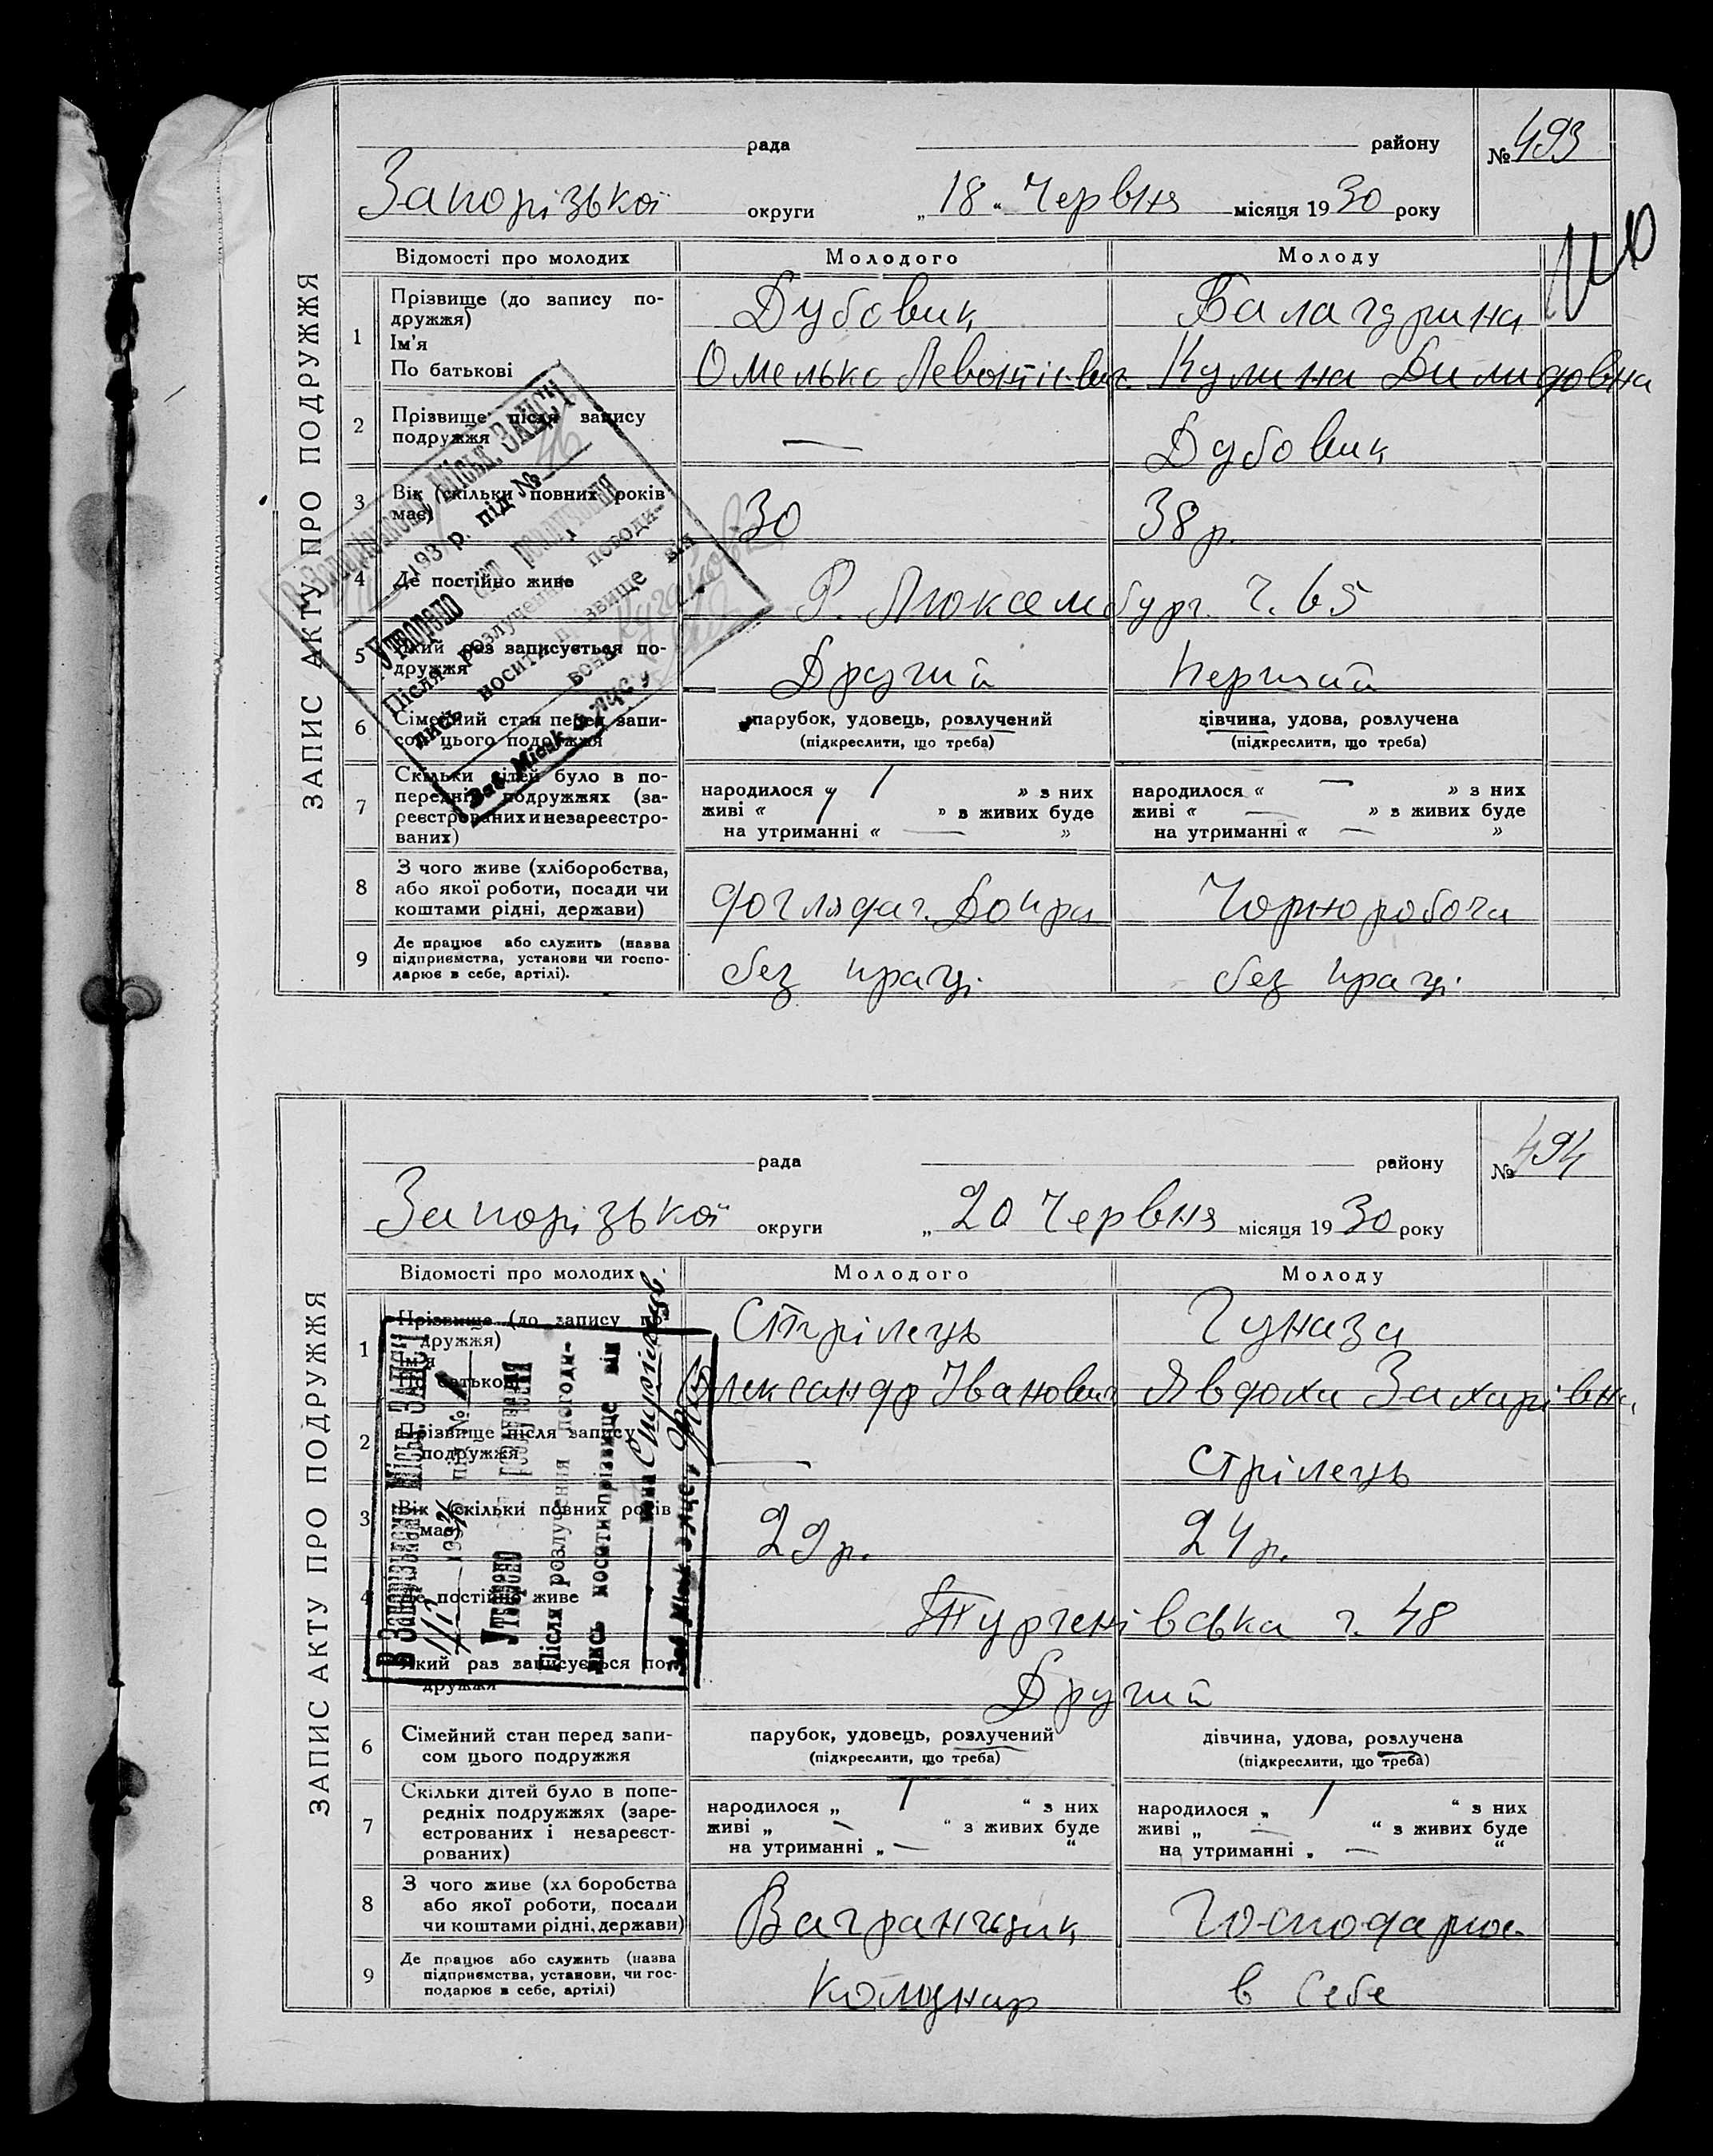 ЗАПИС АКТУ ПРО ПОДРУЖЖЯ
рада району № 493
Запорізької округи „18“ Червня місяця 1930 року
Відомості про молодих Молодого Молоду
1 Прізвище (до запису по-
дружжя)
Ім'я
По батькові
Дубовик Балагурина
Омелько Левонтієвич Кулина Дилидовна
2 Прізвище після запису
подружжя
— Дубовик
3 Вік (скільки повних років
має)
30 38 р.
4 Де постійно живе
Р. Люксембург. ч. 65
5 Який раз записується по-
дружжя
Другий Перший
6 Сімейний стан перед запи-
сом цього подружжя
парубок, удовець, розлучений
(підкреслити, що треба)
дівчина, удова, розлучена
(підкреслити, що треба)
7 Скільки дітей було в по-
передніх подружжях (за-
реєстрованих и незареєстро-
ваних)
народилося « / » з них
живі « » з живих буде
на утриманні « — »
народилося « — » з них
живі « — » з живих буде
на утриманні « — »
8 З чого живе (хліборобства,
або якої роботи, посади чи
коштами рідні, держави)
Чорноробоча
9 Де працює або служить (назва
підприємства, установи чи госпо-
дарює в себе, артілі).
без праці без праці
В Запорізькому Міськ. ЗАПСІ
193 р. під №
Утворено акт розлучення
Після розлучення поводи-
лись носити прізвище він
вона
Зав. Міськ. ЗАПСу
ЗАПИС АКТУ ПРО ПОДРУЖЖЯ
рада району № 494
Запорізької округи „20 Червня місяця 1930 року
Відомості про молодих Молодого Молоду
1 Прізвище (до запису по-
дружжя)
Ім'я
По батькові
Стрілець Гуназа
Олександр Іванович Явдоха Захарівна
2 Прізвище після запису
подружжя
— Стрілець
3 Вік (скільки повних років
має)
29 р. 24 р.
4 Де постійно живе
Тургенівська ч. 48
Який раз записується по-
дружжя
Другий
6 Сімейний стан перед запи-
сом цього подружжя
парубок, удовець, розлучений
(підкреслити, що треба)
дівчина, удова, розлучена
(підкреслити, що треба)
7 Скільки дітей було в попе-
редніх подружжях (заре-
єстрованих і незареєст-
рованих)
народилося „ / “ з них
живі „ — “ з живих буде
на утриманні „ — “
народилося „ / “ з них
живі „ — “ з живих буде
на утриманні „ — “
8 З чого живе (хл боробства
або якої роботи, посади
чи коштами рідні, держави)
Вагранщик Господарює
9 Де працює або служить (назва
підприємства, установи, чи гос-
подарює в себе, артілі)
Комунар в себе
В Запорізькому Міськ. ЗАПСІ
193 під №
Утворено розлучення
Після розлучення погоди-
лись носити прізвище він
вона
Зав. Міськ. ЗАПСу